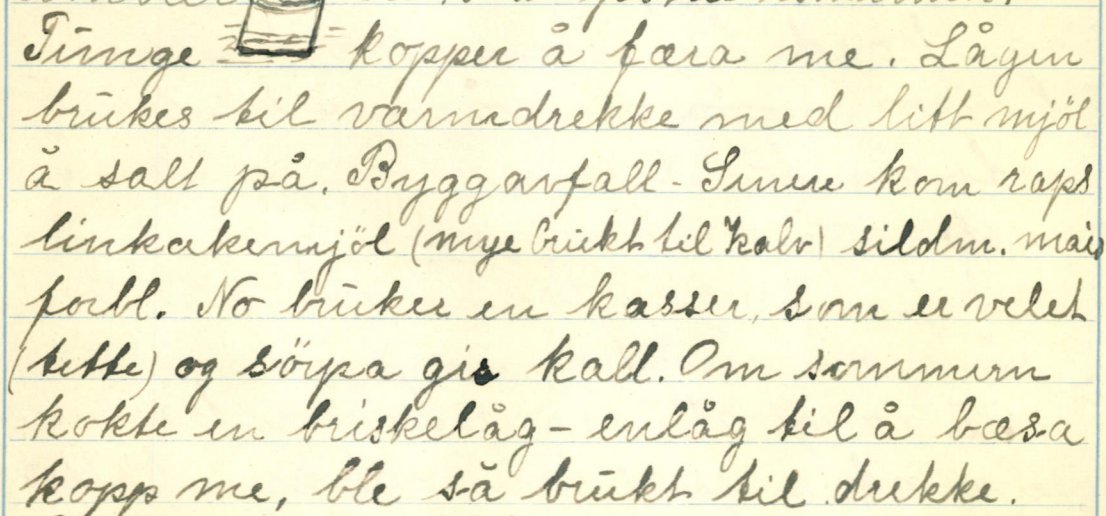 Tunge kopper å færa me. Lågen
brukes til varmdrekke med litt mjöl
å salt på. Byggavfall - Sinere kom raps
linkakemjöl (mye brukt til kalv) sildm. mais
forbl. No bruker en kasser, som er velet
(tette) og sörpa gis kall. Om sommern
kokte en briskelåg - enlåg til å bæsa
kopp me, ble så brukt til drekke.